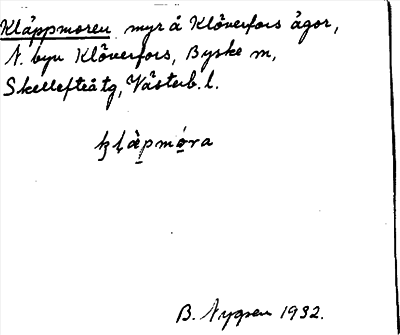 Kläppmoren myr å Klöverfors ägor,
N. byn Klöverfors, Byske sn,
Skellefteå tg, Västerb. l.
ḵlä̀pmó̱ra
B. Nygren 1932.